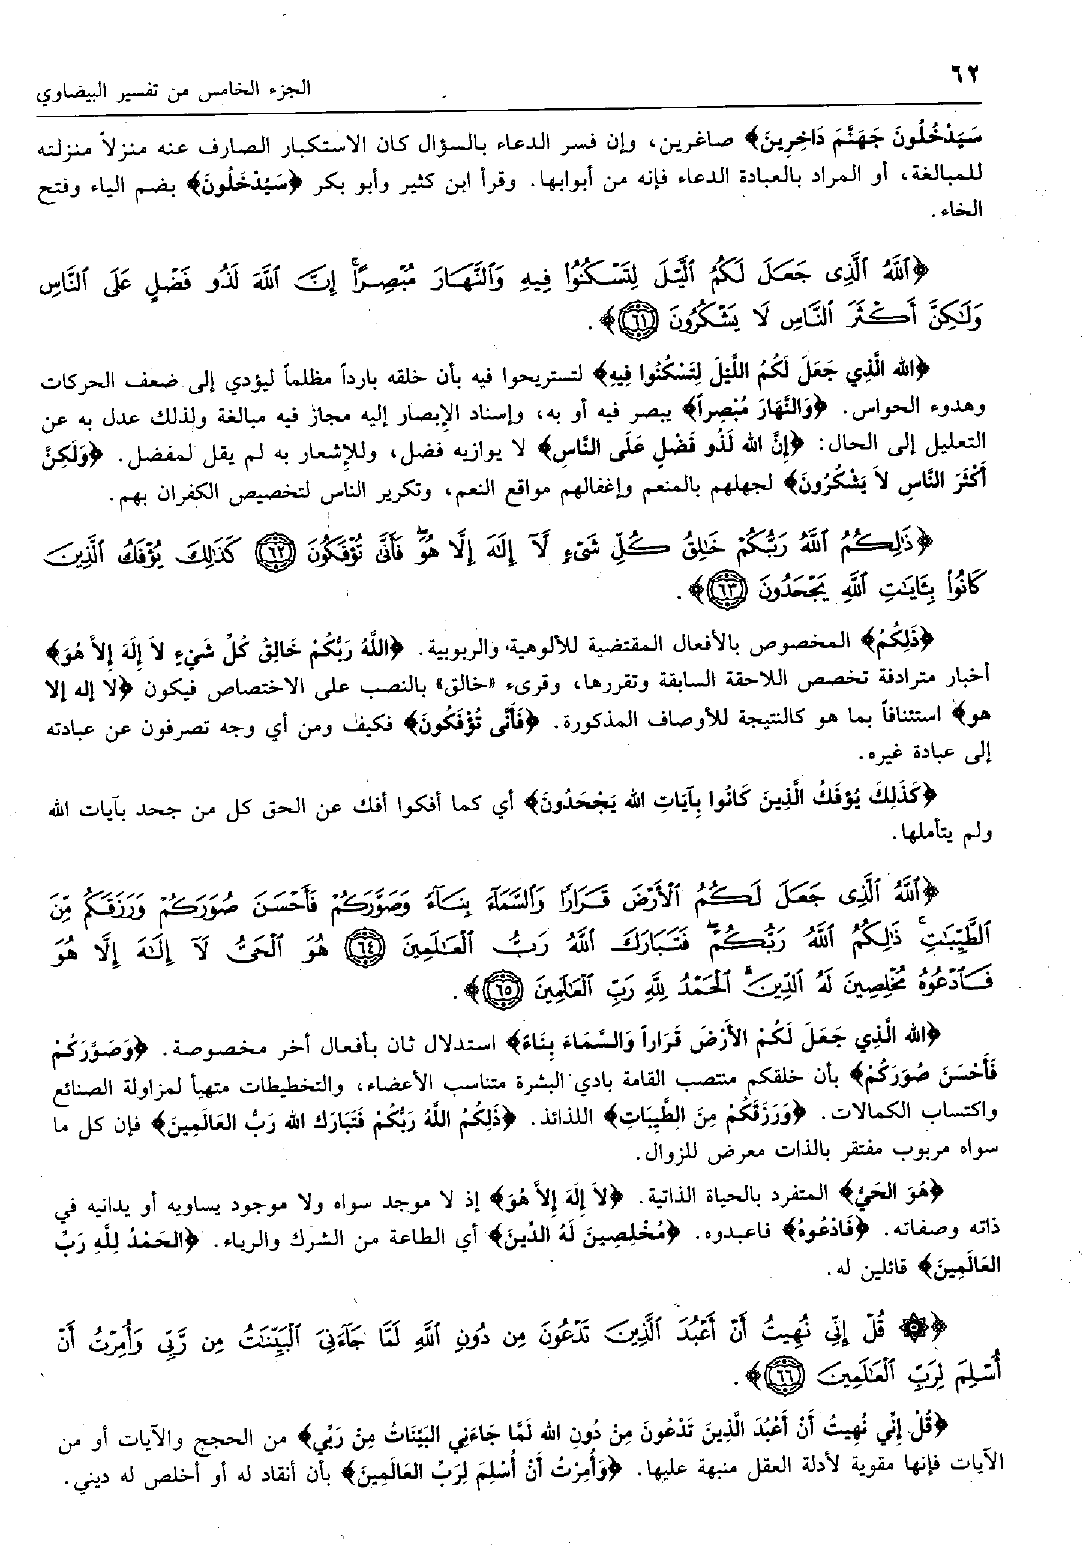 ٦٢
الجزء الخامس من تفسير البيضاوي
سَيَدْخُلُونَ جَهَنَّمَ دَاخِرِينَ﴾ صاغرين، وإن فسر الدعاء بالسؤال كان الاستكبار الصارف عنه منزلاً منزلته
للمبالغة، أو المراد بالعبادة الدعاء فإنه من أبوابها. وقرأ ابن كثير وأبو بكر ﴿سَيُدْخَلُونَ﴾ بضم الياء وفتح
الخاء.
﴿اللَّهُ الَّذِى جَعَلَ لَكُمُ الَّيْلَ لِتَسْكُنُوا فِيهِ وَالنَّهَارَ مُبْصِراً إِنَّ اللَّهَ لَذُو فَضْلٍ عَلَى النَّاسِ
وَلَٰكِنَّ أَكْثَرَ النَّاسِ لَا يَشْكُرُونَ ٦١﴾.
﴿الله الَّذِي جَعَلَ لَكُمُ اللَّيْلَ لِتَسْكُنُوا فِيهِ﴾ لتستريحوا فيه بأن خلقه بارداً مظلماً ليؤدي إلى ضعف الحركات
وهدوء الحواس. ﴿وَالنَّهَارَ مُبْصِراً﴾ يبصر فيه أو به، وإسناد الإبصار إليه مجاز فيه مبالغة ولذلك عدل به عن
التعليل إلى الحال: ﴿إِنَّ الله لَذُو فَضْلٍ عَلَى النَّاسِ﴾ لا يوازيه فضل، وللإشعار به لم يقل لمفضل. ﴿وَلَكِنَّ
أَكْثَرَ النَّاسِ لاَ يَشْكُرُونَ﴾ لجهلهم بالمنعم وإغفالهم مواقع النعم، وتكرير الناس لتخصيص الكفران بهم.
﴿ذَٰلِكُمُ اللَّهُ رَبُّكُمْ خَٰلِقُ كُلِّ شَىْءٍ لَّا إِلَٰهَ إِلَّا هُوَ فَأَنَّى تُؤْفَكُونَ ٦٢ كَذَٰلِكَ يُؤْفَكُ الَّذِينَ
كَانُوا بِـَٔايَٰتِ اللَّهِ يَجْحَدُونَ ٦٣﴾.
﴿ذَلِكُمْ﴾ المخصوص بالأفعال المقتضية للألوهية والربوبية. ﴿اللَّهُ رَبُّكُمْ خَالِقُ كُلِّ شَيْءٍ لاَ إِلَهَ إِلاَّ هُوَ﴾
أخبار مترادفة تخصص اللاحقة السابقة وتقررها، وقرىء «خالق» بالنصب على الاختصاص فيكون ﴿لا إله إلا
هو﴾ استئنافاً بما هو كالنتيجة للأوصاف المذكورة. ﴿فَأَنَّى تُؤْفَكُونَ﴾ فكيف ومن أي وجه تصرفون عن عبادته
إلى عبادة غيره.
﴿كَذَلِكَ يُؤْفَكُ الَّذِينَ كَانُوا بِآيَاتِ الله يَجْحَدُونَ﴾ أي كما أفكوا أفك عن الحق كل من جحد بآيات الله
ولم يتأملها.
﴿اللَّهُ الَّذِى جَعَلَ لَكُمُ الْأَرْضَ قَرَارًا وَالسَّمَاءَ بِنَاءً وَصَوَّرَكُمْ فَأَحْسَنَ صُوَرَكُمْ وَرَزَقَكُم مِّنَ
الطَّيِّبَٰتِ ذَٰلِكُمُ اللَّهُ رَبُّكُمْ فَتَبَارَكَ اللَّهُ رَبُّ الْعَٰلَمِينَ ٦٤ هُوَ الْحَىُّ لَا إِلَٰهَ إِلَّا هُوَ
فَادْعُوهُ مُخْلِصِينَ لَهُ الدِّينَ الْحَمْدُ لِلَّهِ رَبِّ الْعَٰلَمِينَ ٦٥﴾.
﴿الله الَّذِي جَعَلَ لَكُمْ الأَرْضَ قَرَاراً وَالسَّمَاءَ بِنَاءً﴾ استدلال ثان بأفعال أخر مخصوصة. ﴿وَصَوَّرَكُمْ
فَأَحْسَنَ صُوَرَكُمْ﴾ بأن خلقكم منتصب القامة بادي البشرة متناسب الأعضاء، والتخطيطات متهيأ لمزاولة الصنائع
واكتساب الكمالات. ﴿وَرَزَقَكُمْ مِنَ الطَّيِّبَاتِ﴾ اللذائذ. ﴿ذَلِكُمُ اللَّهُ رَبُّكُمْ فَتَبَارَكَ الله رَبُّ العَالَمِينَ﴾ فإن كل ما
سواه مربوب مفتقر بالذات معرض للزوال.
﴿هُوَ الحَيُّ﴾ المتفرد بالحياة الذاتية. ﴿لاَ إِلَهَ إِلاَّ هُوَ﴾ إذ لا موجد سواه ولا موجود يساويه أو يدانيه في
ذاته وصفاته. ﴿فَادْعُوهُ﴾ فاعبدوه. ﴿مُخْلِصِينَ لَهُ الدِّينَ﴾ أي الطاعة من الشرك والرياء. ﴿الحَمْدُ لِلَّهِ رَبِّ
العَالَمِينَ﴾ قائلين له.
﴿۞ قُلْ إِنِّى نُهِيتُ أَنْ أَعْبُدَ الَّذِينَ تَدْعُونَ مِن دُونِ اللَّهِ لَمَّا جَاءَنِىَ الْبَيِّنَٰتُ مِن رَّبِّى وَأُمِرْتُ أَنْ
أُسْلِمَ لِرَبِّ الْعَٰلَمِينَ ٦٦﴾.
﴿قُلْ إِنِّي نُهِيتُ أَنْ أَعْبُدَ الَّذِينَ تَدْعُونَ مِنْ دُونِ الله لَمَّا جَاءَنِي البَيِّنَاتُ مِنْ رَبِّي﴾ من الحجج والآيات أو من
الآيات فإنها مقوية لأدلة العقل منبهة عليها. ﴿وَأُمِرْتُ أَنْ أُسْلِمَ لِرَبِّ العَالَمِينَ﴾ بأن أنقاد له أو أخلص له ديني.